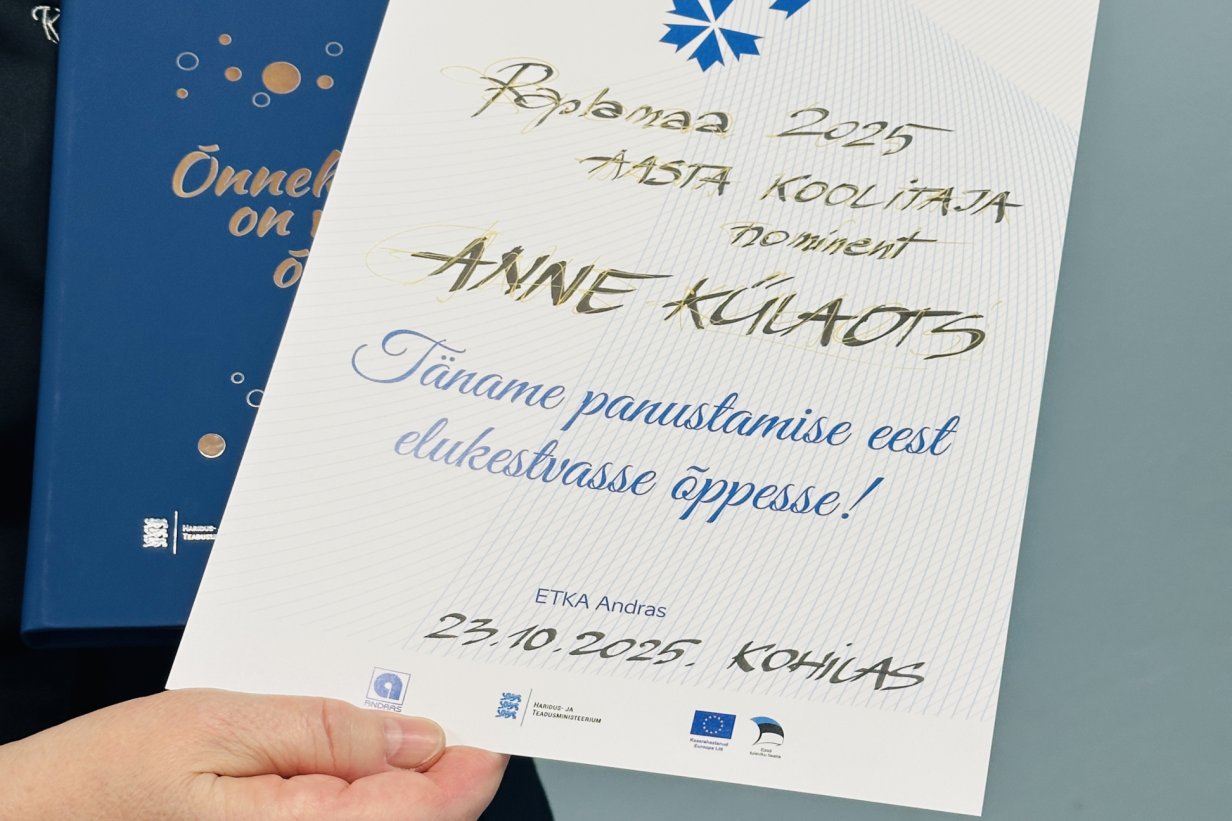 Õnneh
on
õ
HARIDUS- 
TEADUSM
Raplamaa 2025
AASTA KOOLITAJA
nominent
ANNE KÜLAOTS
Täname panustamise eest
elukestvasse õppesse!
ETKA Andras
23.10.2025. KOHILAS
ANDRAS
HARIDUS- JA
TEADUSMINISTEERIUM
Kaasrahastanud
Euroopa Liit
Eesti
tuleviku heaks